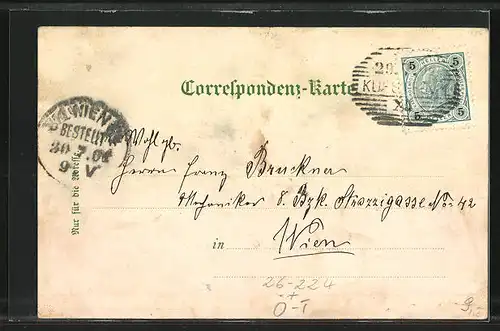 Correspondenz-Karte
5 5
5 5
29.
X
WIEN
BESTELLT
30.7.04
9 V
Nur für die Adresse
Wohlgb.
Herrn Franz Bruckner
Mechaniker 8. Bzk. No: 42
in Wien
26-224
+
Ö-T
9,-